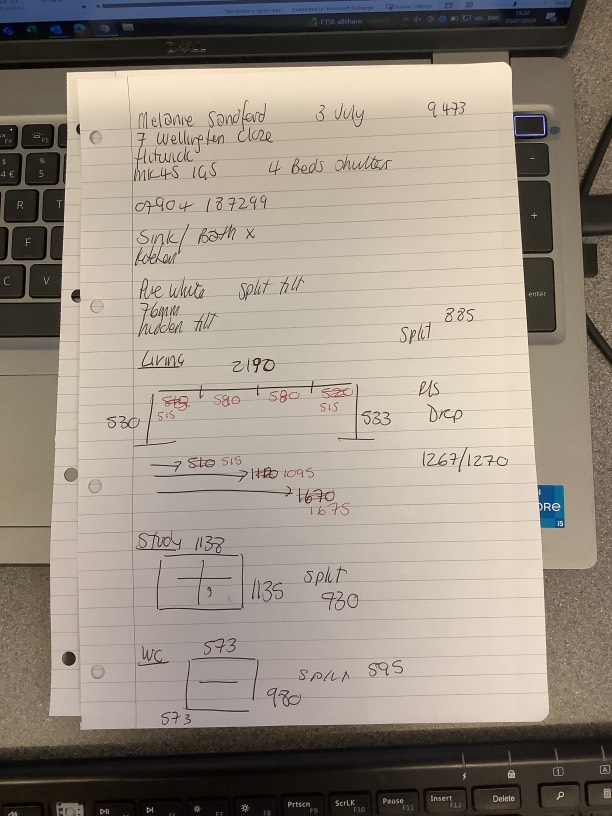 Melanie Sandford 3 July 9473
7 Wellington Close
flitwick
MK45 1GS 4 Beds shutter
07904 187299
Sink/ Bath x
Kitchen
Pure white split tilt
76mm
hidden tilt
Split 885
Living
2190
515 580 580 520
515 515
530 533
Drop
1267/1270
510 515
1095
1670
1675
Study 1138
1135 Split
930
WC 573
Split 595
980
573
DELL
FTSE allshare
Prtscn
F9
ScrLK
F10
Pause
F11
Insert
F12
Delete
enter
i5